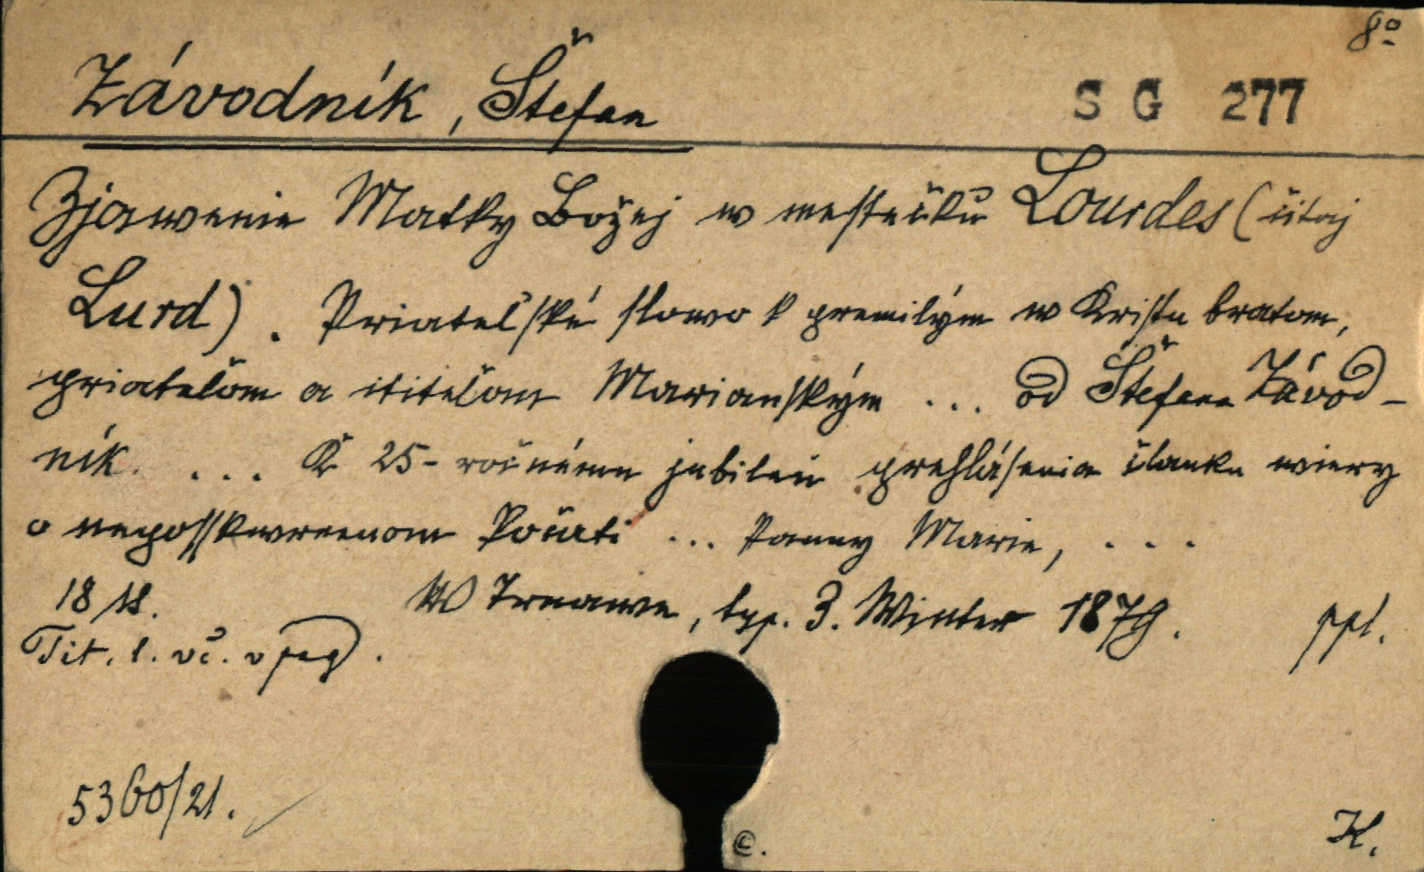 8º
Závodník, Štefan
S G 277
Zjawenie Matky Božej w mestečku Lourdes (čitaj
Lurd). Priatelské slowo k premilým w Kristu bratom,
priatelom a ctitelom Marianským ... od Štefana Závod-
ník. ... K 25-ročnému jubileu prehlásenia članku wiery
o neposskwrnenom Počati ... Panny Marie, ...
W Trnawe, typ. Winter 1879. ppl.
Tit. l. vč. v pag.
5360/21.
©.
K.